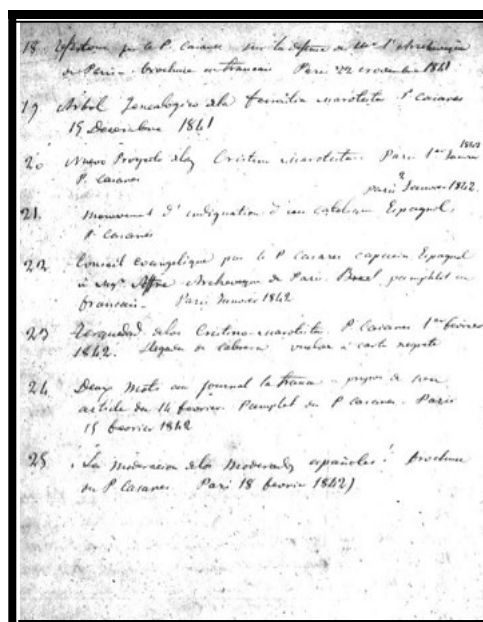 18. par le P. Casares sur la defense de Mgr l'Archevêque
de Paris. brochure en francais Paris 22 novembre 1841
19 Arbol Genealogico de la familia marotista P. Casares
15 Decembre 1841
20 Nuevo Proyecto de los Cristino-marotistas. Paris 1er Janvier 1842
P. Casares
Paris 2 Janvier 1842.
21. Mouvement d'indignation d'un catholique Espagnol,
P. Casares
22 Conseil evangelique par le P Casares capucin Espagnol
à Mgr Affre Archevêque de Paris. pamphlet en
francais. Paris Janvier 1842
23 Terquedad de los Cristino-marotistas. P. Casares 1er fevrier
1842. Llegada de Cabrera
24 Deux mots au journal la france a propos de son
article du 14 fevrier. Pamplet du P Casares. Paris
15 fevrier 1842
25 La moderacion de los Moderados españoles! Brochure
du P. Casares. Paris 18 fevrier 1842)